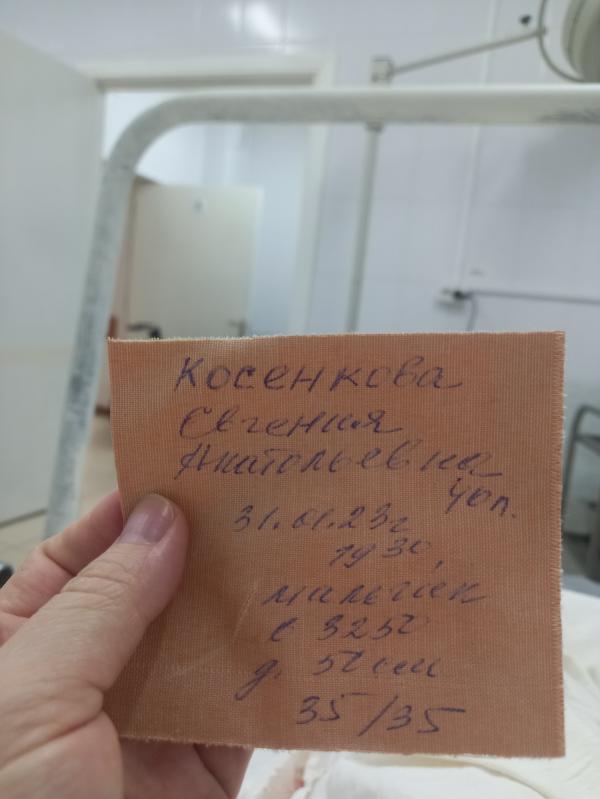 Косенкова
Евгения
Анатольевна
40л.
31.01.23г
19 30
мальчик
в 3250
д. 50 см
35/35